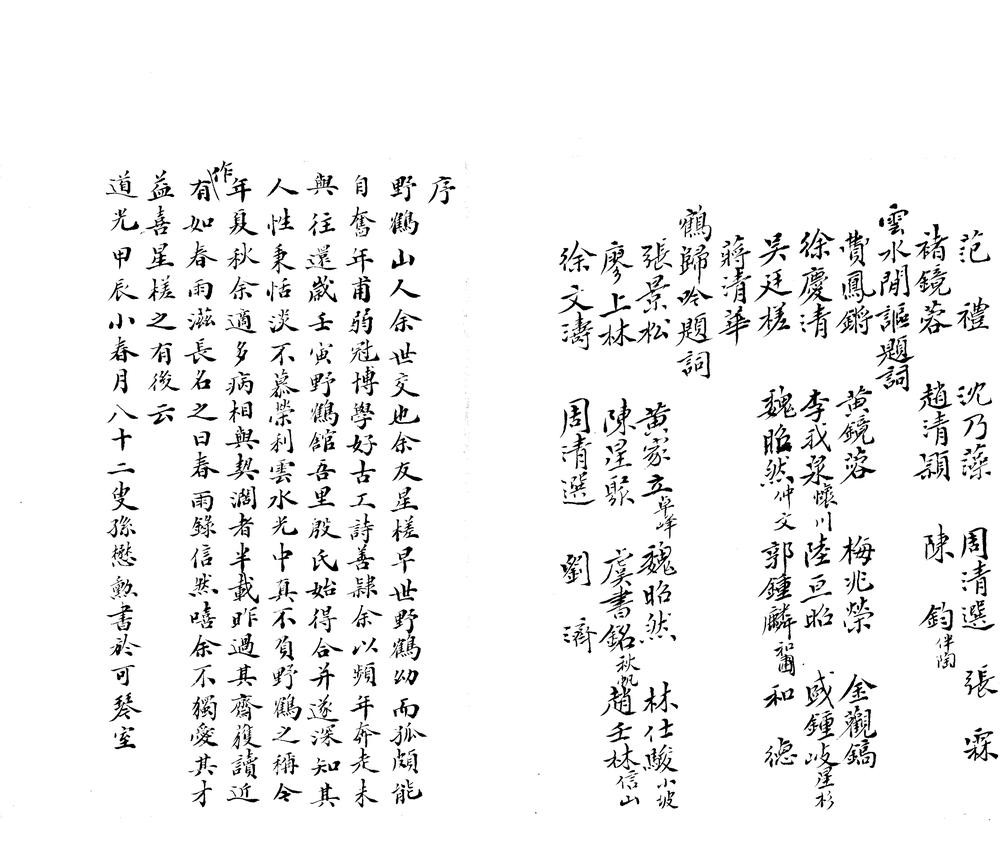 范禮 沈乃藻 周清選 張霖
褚鏡蓉 趙清頴 陳鈞伴陶
雲水閒謳題詞
費鳳鏘 黃鏡蓉 梅兆榮 金觀鎬
徐慶清 李我泉懷川 陸亘昭 盛鍾岐星杉
吳廷槎 魏昭然仲文 郭鍾麟和圃 和德
蔣清華
鶴歸吟題詞
張景松 黃家立阜峰 魏昭然 林仕駿小坡
廖上林 陳星聚 虞書銘秋帆 趙壬林信山
徐文濤 周清選 劉濟
序
野鶴山人余世交也余友星槎早世野鶴幼而孤頗能
自奮年甫弱冠博學好古工詩善隸余以頻年奔走未
與往還歲壬寅野鶴館吾里殷氏始得合并遂深知其
人性秉恬淡不慕榮利雲水光中真不負野鶴之稱今
年夏秋余適多病相與契濶者半載昨過其齋獲讀近
作有如春雨滋長名之曰春雨錄信然嘻余不獨愛其才
益喜星槎之有後云
道光甲辰小春月八十二叟孫懋勳書於可琴室